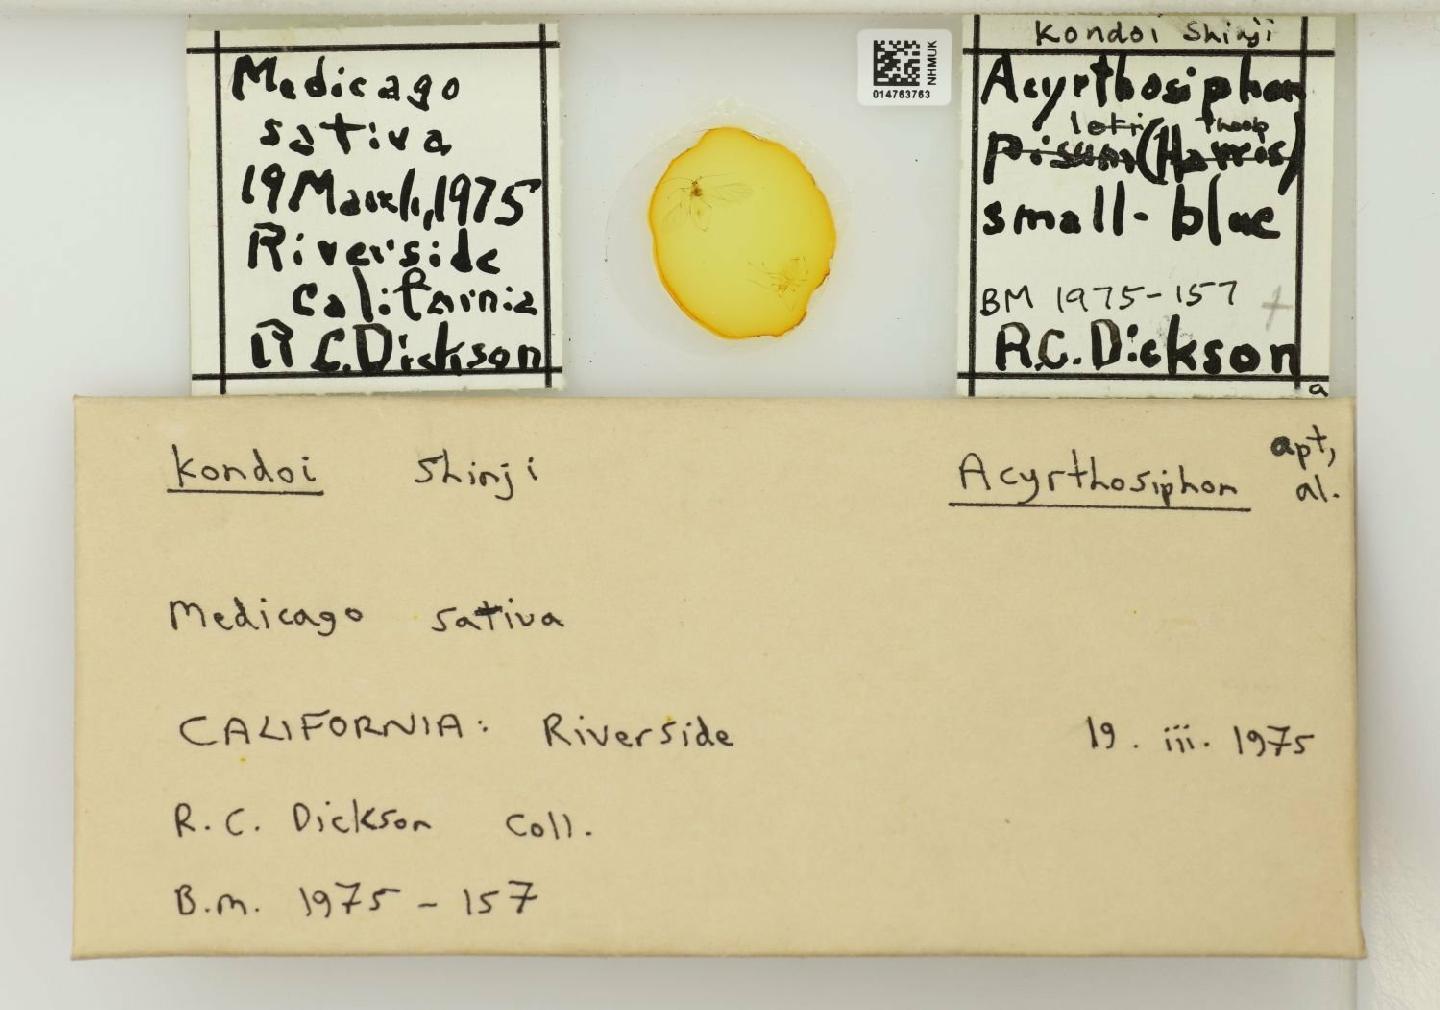 Medicago
sativa
19 March, 1975
Riverside
California
R C. Dickson
NHMUK
014763763
Kondoi Shinji
Acyrthosiphon
loti Theob
pisum (Harris)
small-blue
BM 1975-157 +
R.C. Dickson
a
kondoi Shinji Acyrthosiphon apt,
al.
Medicago sativa
CALIFORNIA: Riverside 19. iii. 1975
R.C. Dickson Coll.
B.m. 1975-157